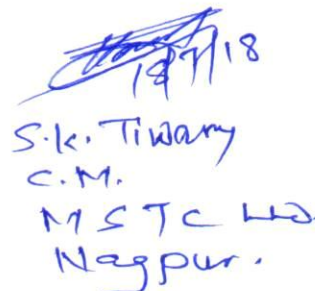 18/7/18
S.K. Tiwary
C.M.
MSTC Ltd.
Nagpur.